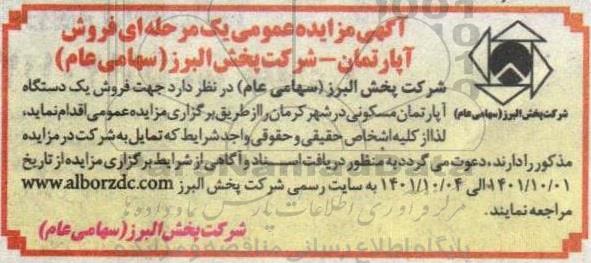 آگهی مزایده عمومی یک مرحله ای فروش
آپارتمان - شرکت پخش البرز (سهامی عام)
شرکت پخش البرز (سهامی عام) در نظر دارد جهت فروش یک دستگاه
آپارتمان مسکونی در شهر کرمان را از طریق برگزاری مزایده عمومی اقدام نماید،
شرکت پخش البرز (سهامی عام)
لذا از کلیه اشخاص حقیقی و حقوقی واجد شرایط که تمایل به شرکت در مزایده
مذکور را دارند، دعوت می گردد به منظور دریافت اسناد و آگاهی از شرایط برگزاری مزایده از تاریخ
۱۴۰۱/۱۰/۰۱ الی ۱۴۰۱/۱۰/۰۴ به سایت رسمی شرکت پخش البرز www.alborzdc.com
مراجعه نمایند.
شرکت پخش البرز (سهامی عام)
مرکز فرآوری اطلاعات پارس نماد داده ها
پایگاه اطلاع رسانی مناقصه و مزایده